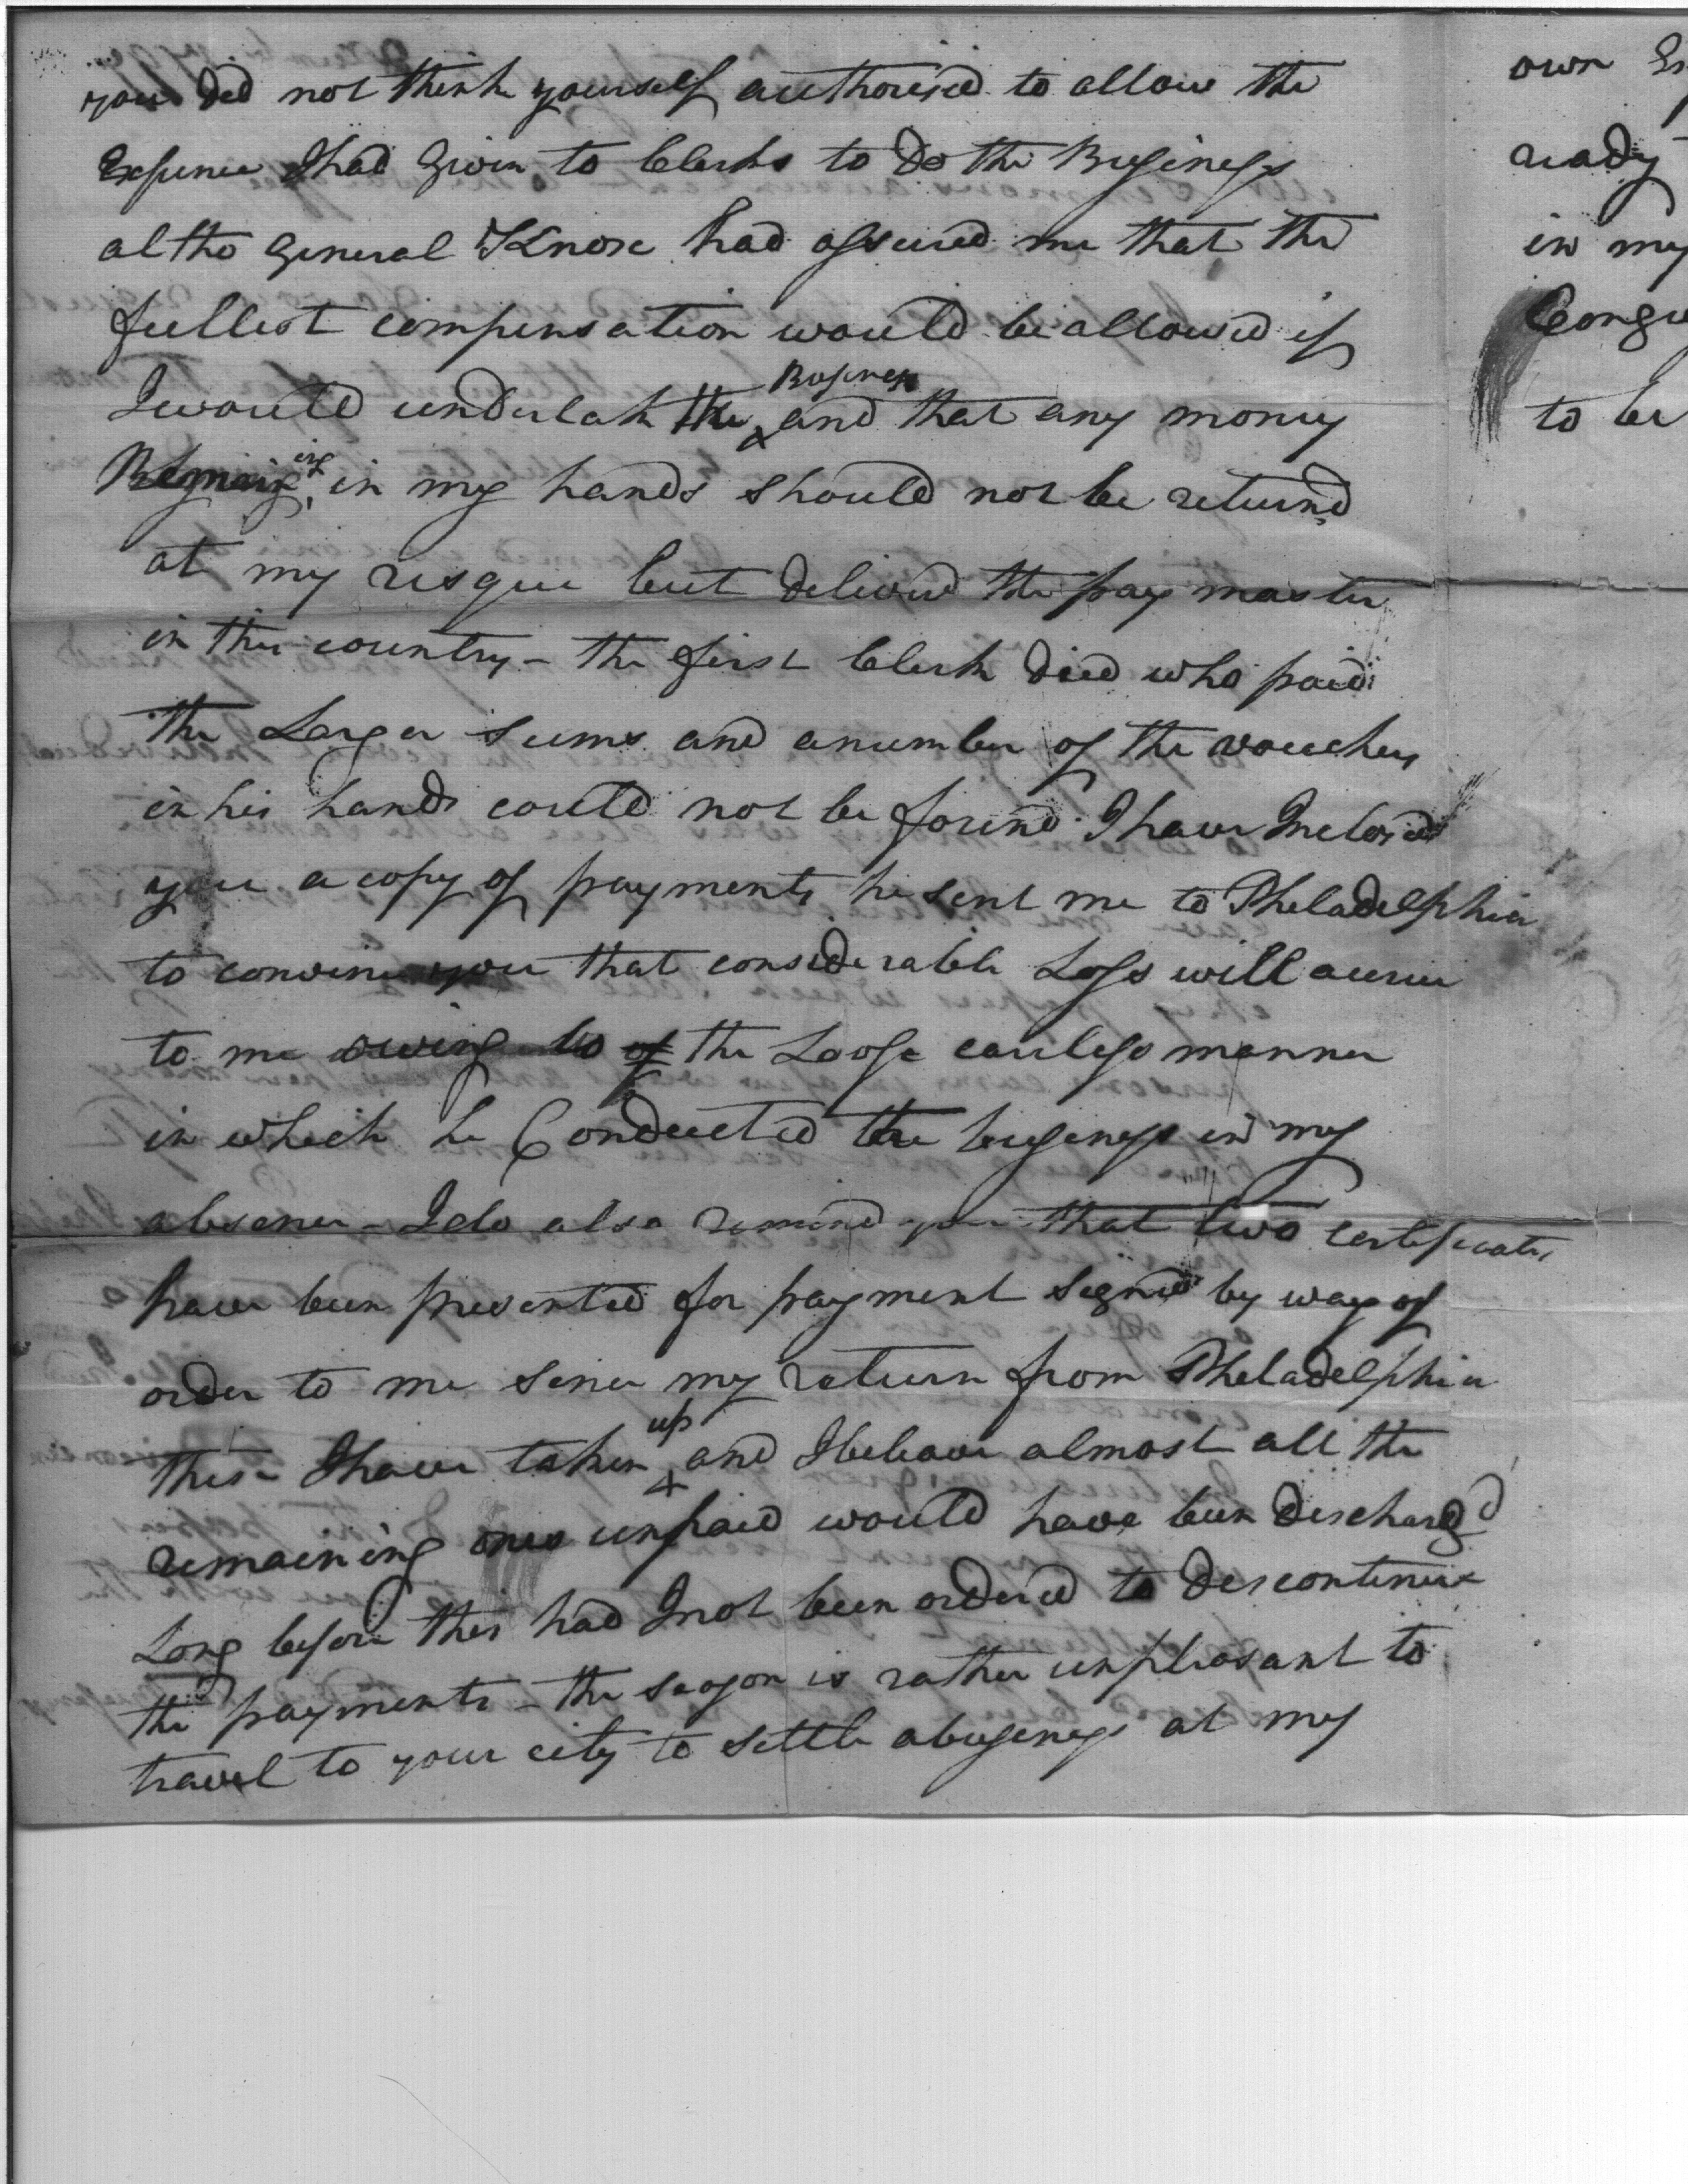 you did not think yourself authorised to allow the
Expence I had Given to Clerks to Do the Business
altho General Knox had assured me that the
fullest compensation would be allowed if
I would undertake the Business and that any money
Remaining in my hands should not be returnd
at my risque but deliverd the pay master
in this country - the first Clerk died who paid
the Larger sums and a number of the vouchers
in his hands could not be found I have Inclosed
you a copy of payments he sent me to Pheladelphia
to convince you that considerable Loss will accrue
to me owing to the Loose careless manner
in which he Conducted the business in my
absence - I do also remind you that two certificates
have been presented for payment signed by way of
order to me since my return from Pheladelphia
these I have taken up and I beleave almost all the
remaining ones unpaid would have been discharg'd
Long before this had I not been ordered to discontinue
the payments - the season is rather unpleasant to
travel to your city to settle a business at my
own
ready
in my
to be